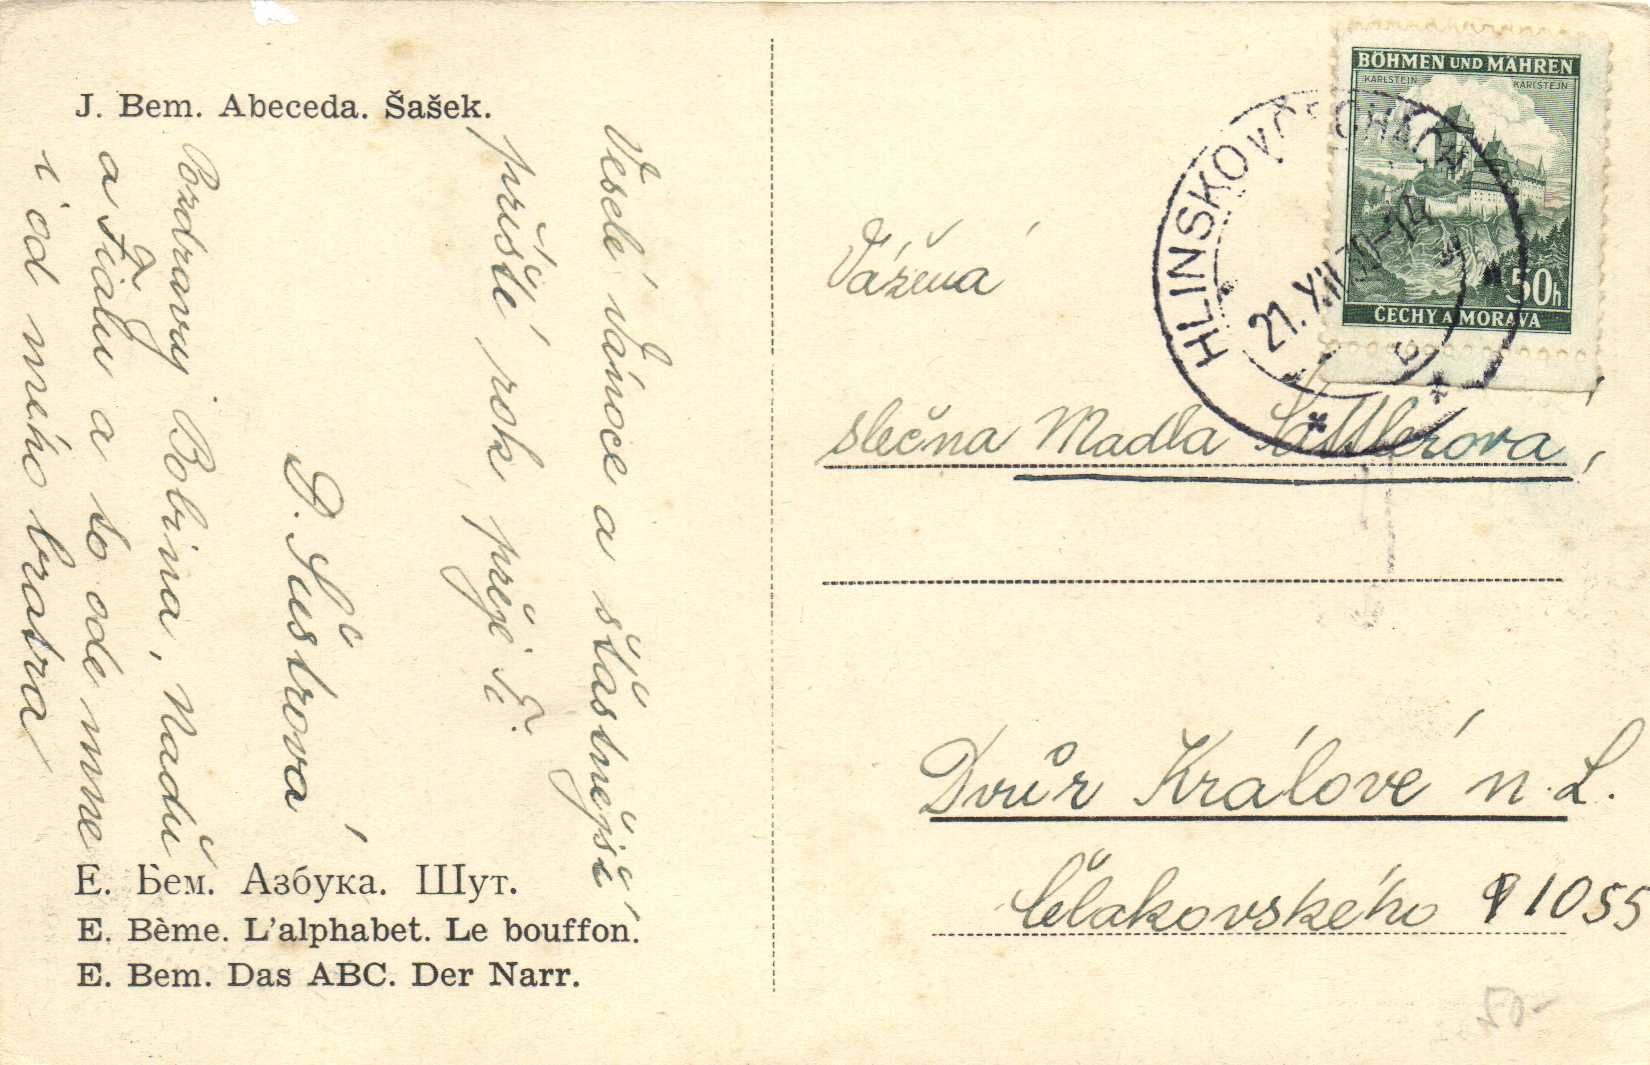 J. Bem. Abeceda. Šašek.
Veselé vánoce a šťastnější
příští rok přeje Ti
D. Šustrová
Pozdravuj Bobina, Nadu
a Fialu a to ode mne
i od mého bratra
E. Бем. Азбука. Шут.
E. Bème. L'alphabet. Le bouffon.
E. Bem. Das ABC. Der Narr.
BÖHMEN UND MÄHREN
KARLSTEIN KARLSTEJN
50h
ČECHY A MORAVA
HLINSKO V ČECHÁCH
21. XII
Vážená
slečna Madla Sattlerova,
Dvůr Králové n. L.
Čelakovského 1055
50-